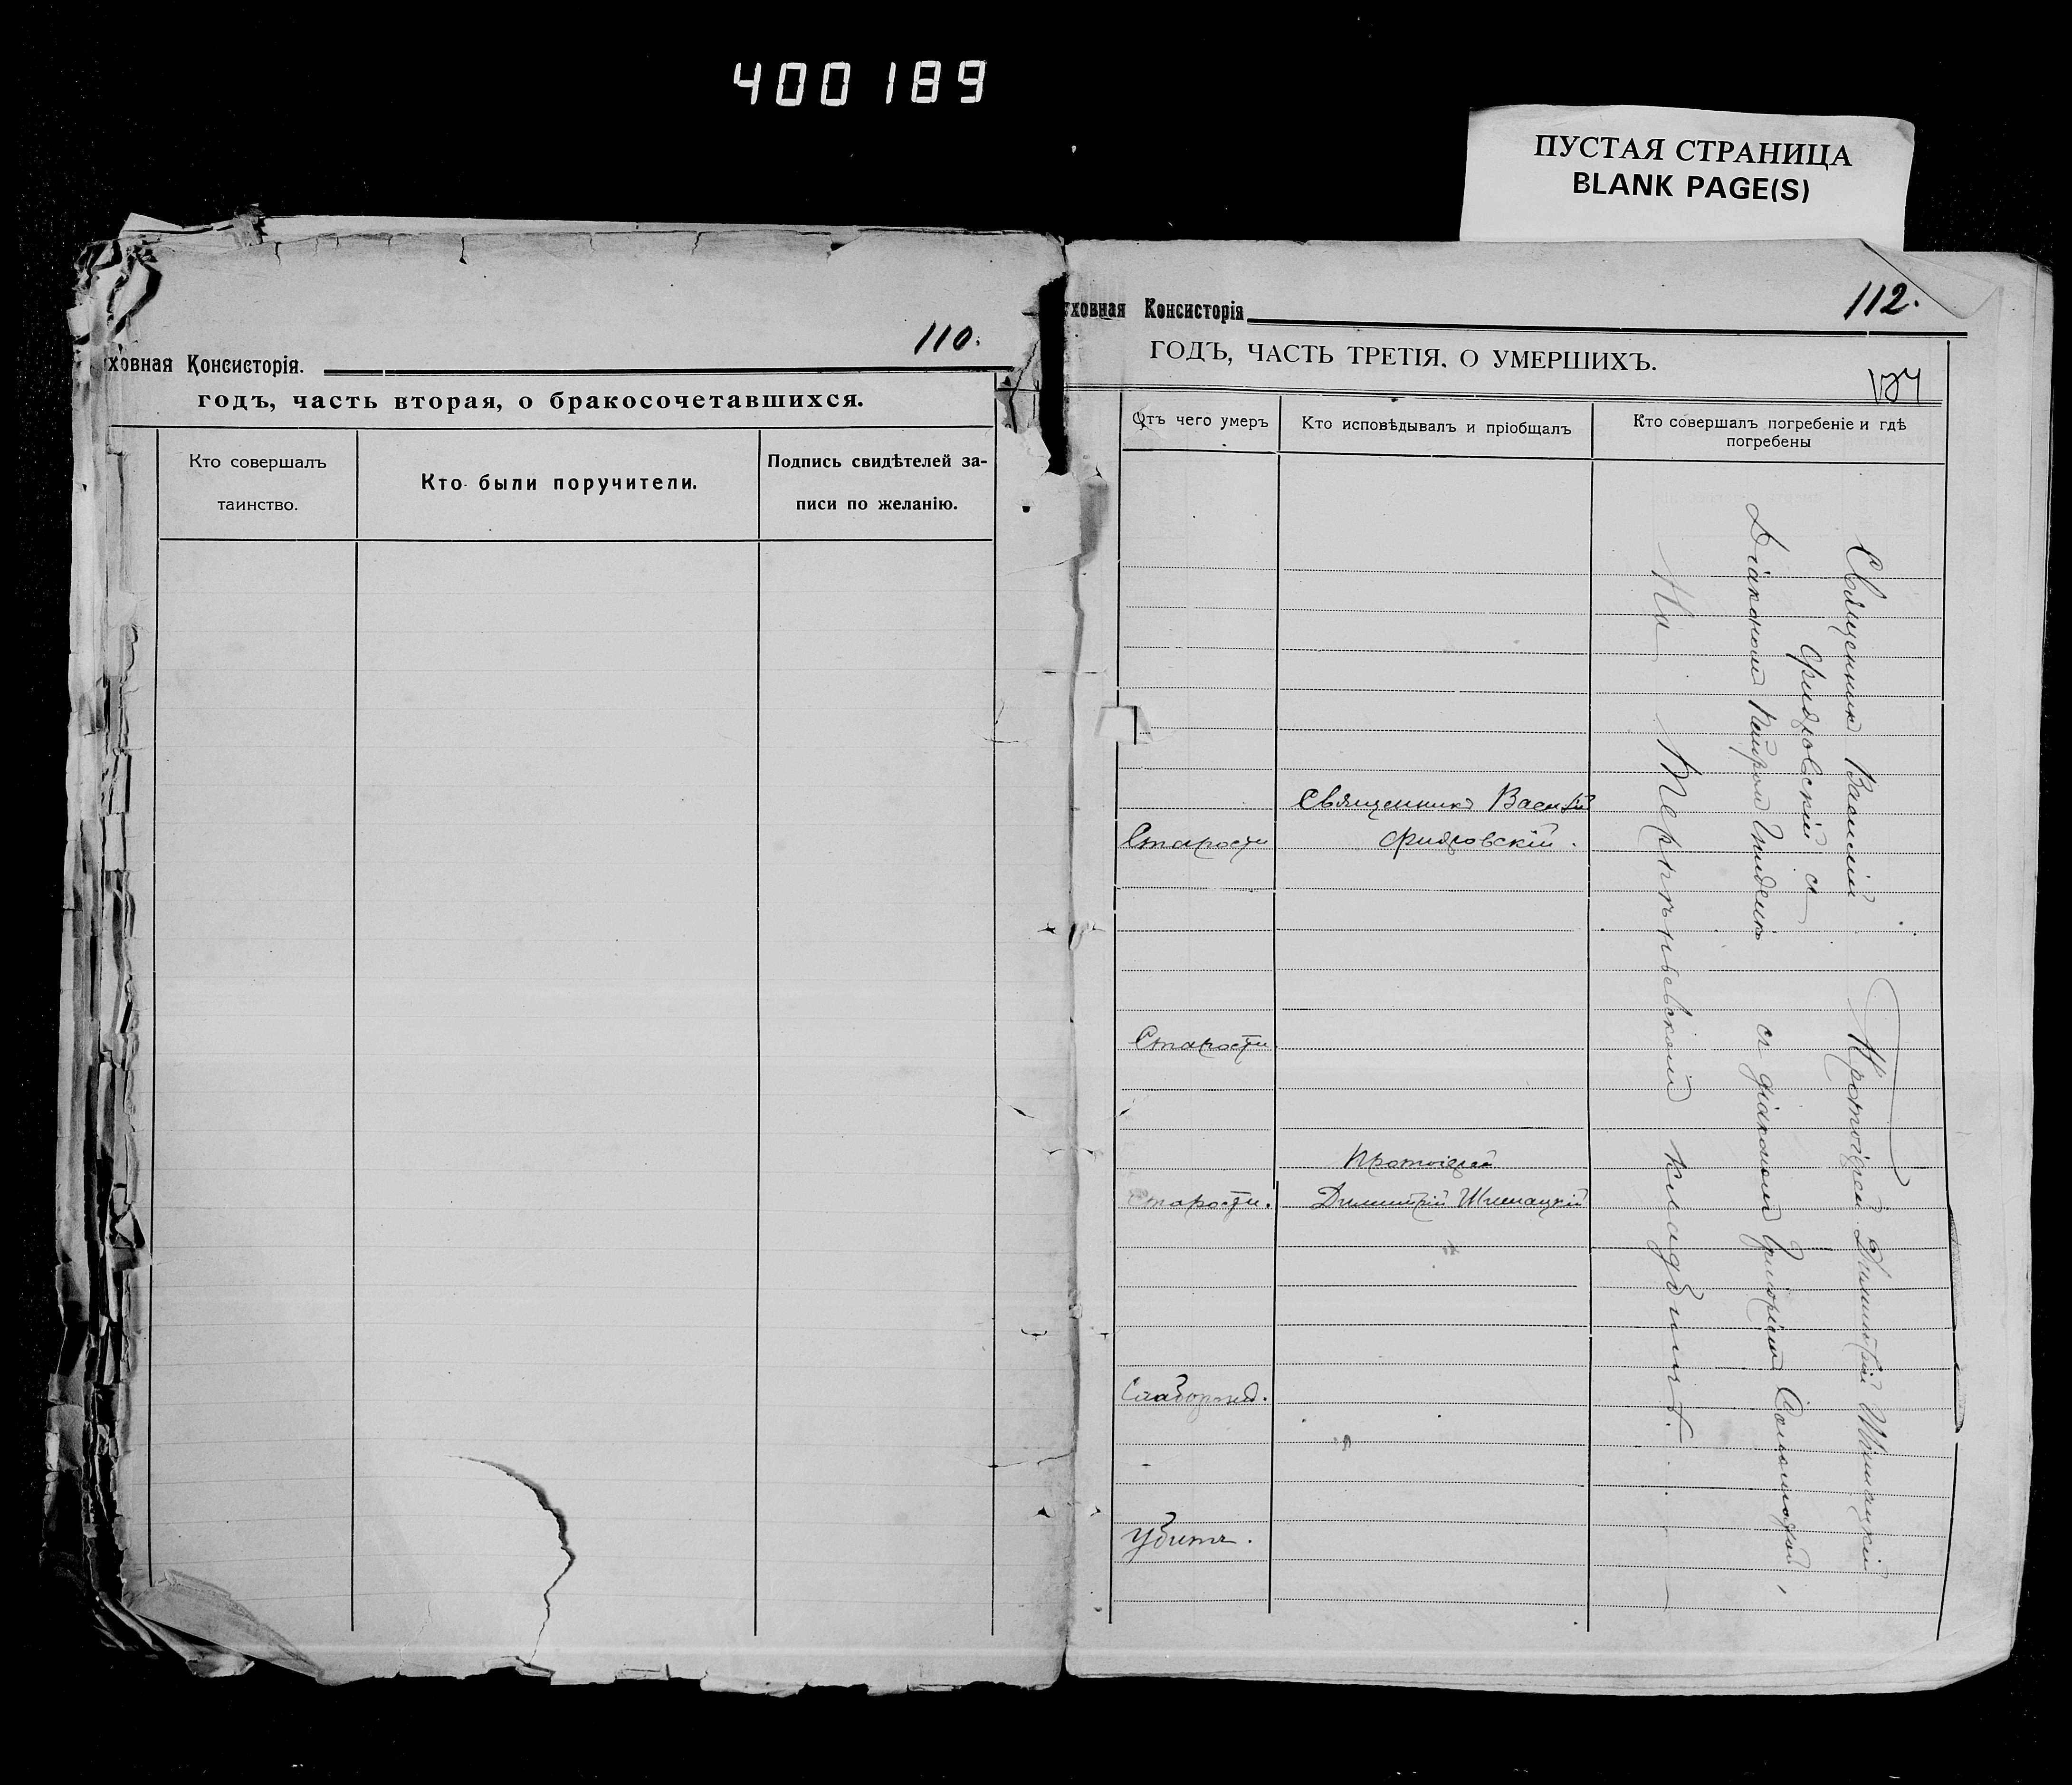 400189
ПУСТАЯ СТРАНИЦА
BLANK PAGE(S)
110.
ховная Консисторія.
годъ, часть вторая, о бракосочетавшихся.
Кто совершалъ
таинство.
Кто были поручители.
Подпись свидѣтелей за-
писи по желанію.
ховная Консисторія
112.
ГОДЪ, ЧАСТЬ ТРЕТІЯ, О УМЕРШИХЪ.
Отъ чего умеръ
Кто исповѣдывалъ и пріобщалъ
Кто совершалъ погребеніе и гдѣ
погребены
Священникъ Василій
Старости
Фидровскій.
Старости
Протоіерей
Старости.
Димитрій Шимацкій
Слаборожд.
Убитъ.
Священникъ Василій
Фидровскій съ
Діакономъ Петромъ
На кладбищѣ.
Протоіерей Димитрій Шимацкій
съ діакономъ Григоріемъ